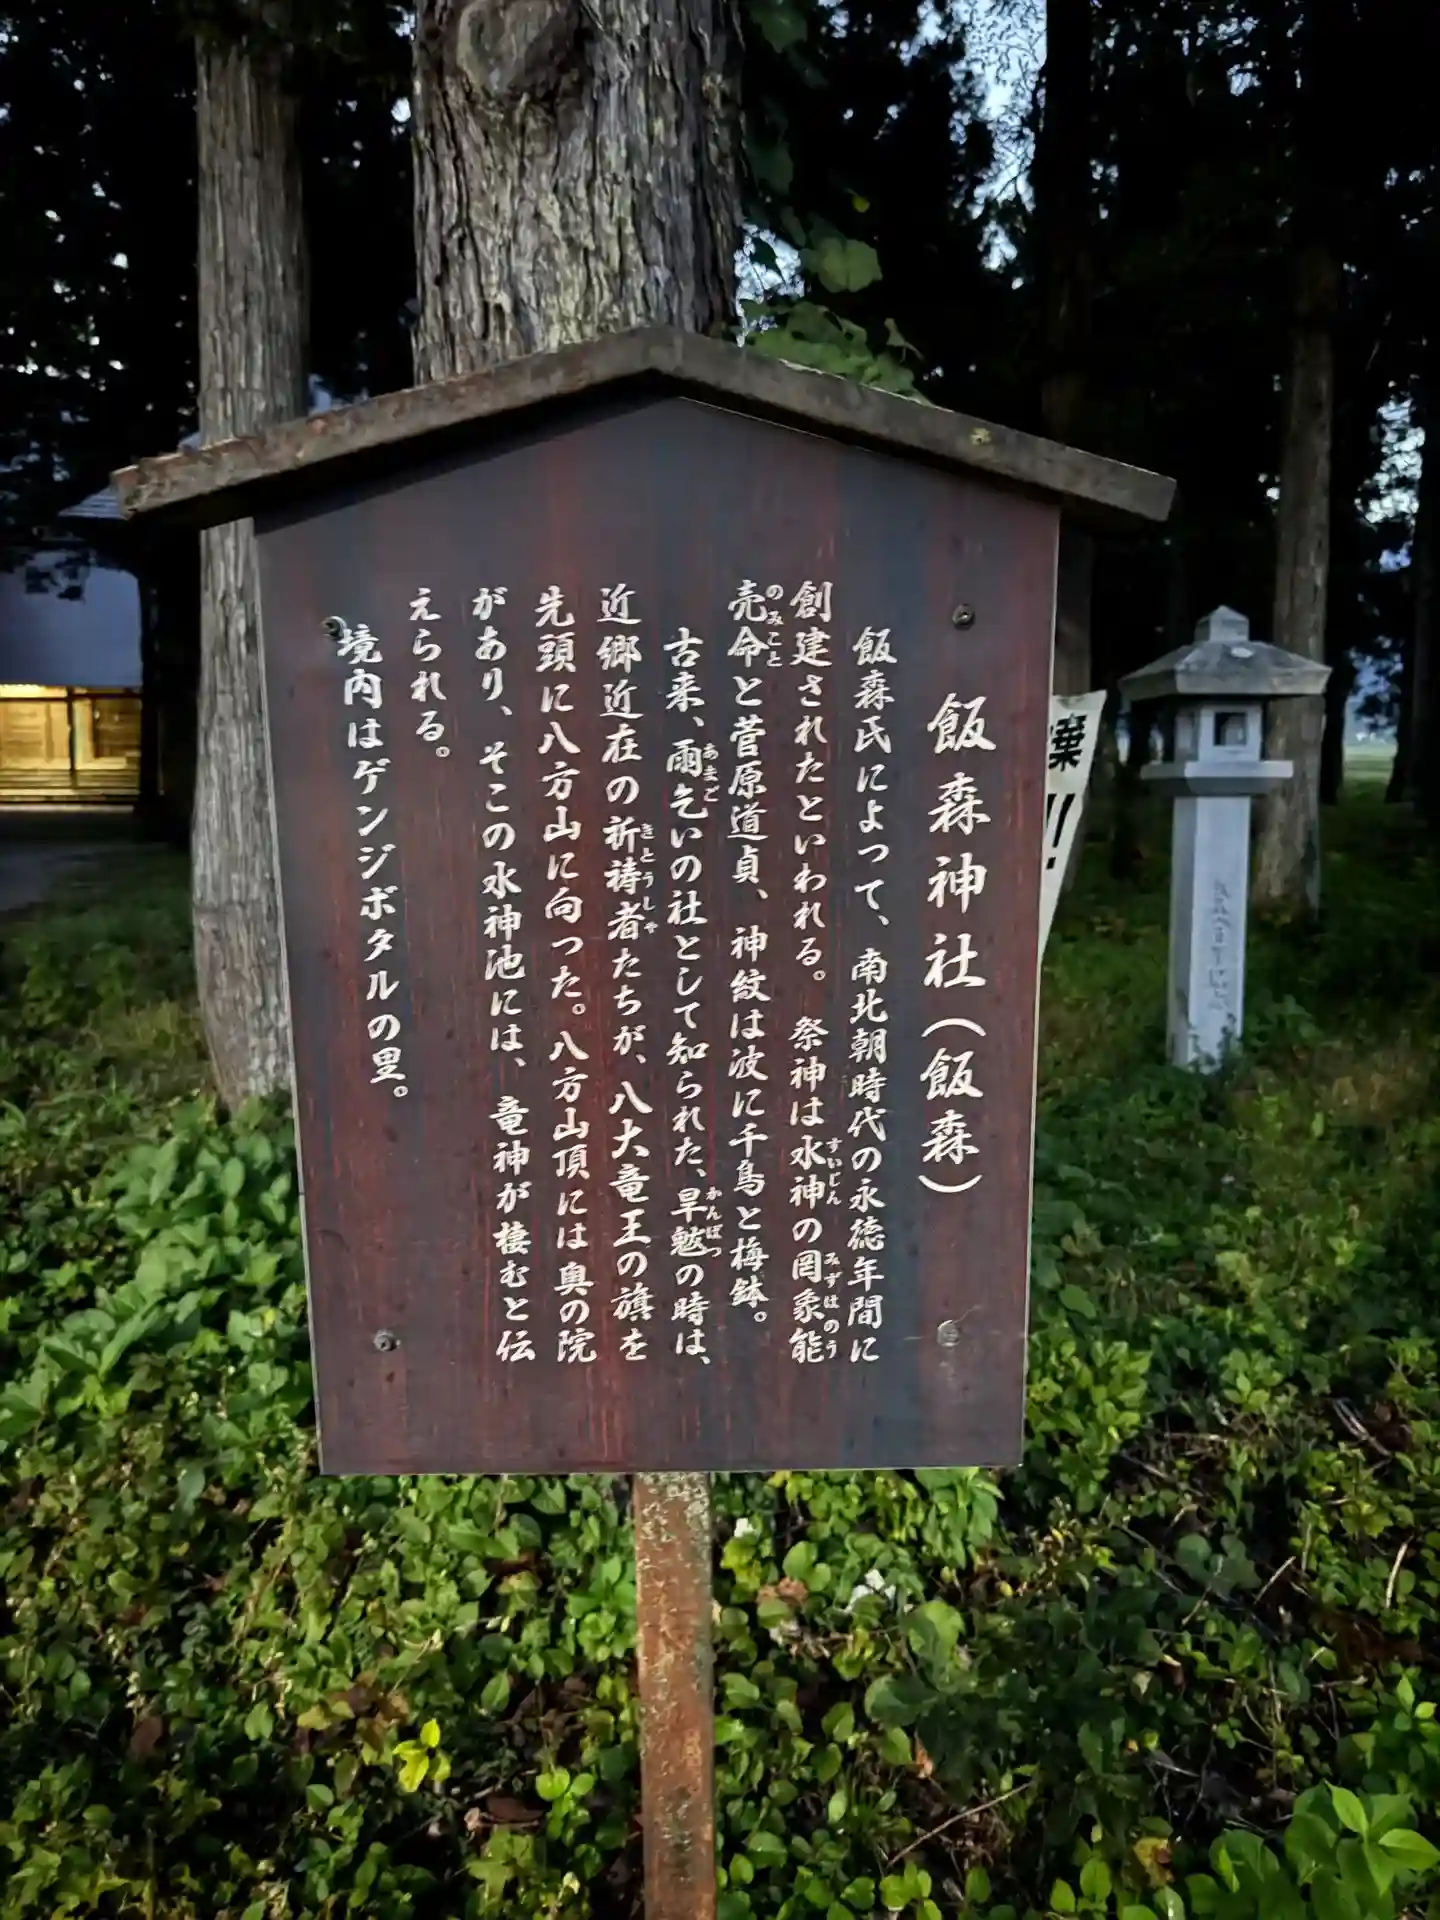 飯森神社(飯森)
飯森氏によって、南北朝時代の永徳年間に
創建されたといわれる。祭神は水神の罔象能
すいじん
みずはのう
売命と菅原道貞、神紋は波に千鳥と梅鉢。
のみこと
古来、雨乞いの社として知られた、旱魃の時は、
あまご
かんばつ
近郷近在の祈祷者たちが、八大竜王の旗を
きとうしや
先頭に八方山に向った。八方山頂には奥の院
があり、そこの水神池には、竜神が棲むと伝
えられる。
境内はゲンジボタルの里。
棄
!!